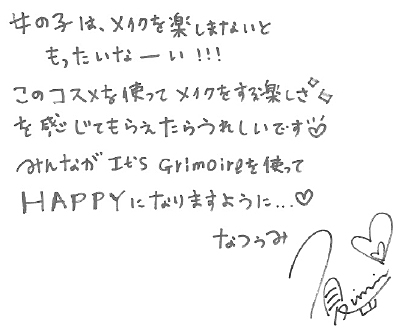 女の子は、メイクを楽しまないと
もったいなーい!!!
このコスメを使ってメイクをする楽しさ
を感じてもらえたらうれしいです♡
みんながIt's Grimoireを使って
HAPPYになりますように...♡
なつぅみ